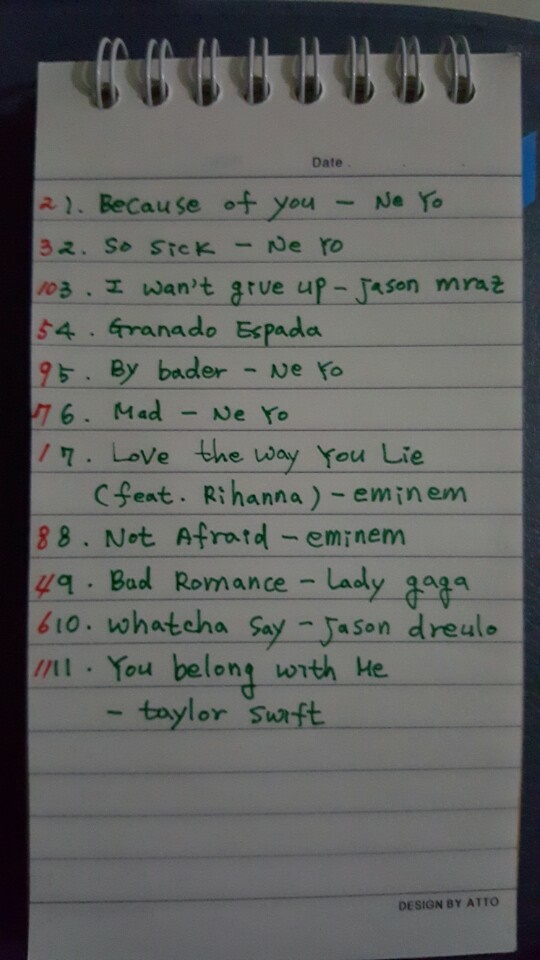 Date .
2 1. Because of you - Ne Yo
3 2. So Sick - Ne Yo
10 3. I wan't give up - Jason mraz
5 4. Granado Espada
9 5. By bader - Ne Yo
7 6. Mad - Ne Yo
1 7. Love the way You Lie
(feat. Rihanna) - eminem
8 8. Not Afraid - eminem
4 9. Bad Romance - Lady gaga
6 10. whatcha Say - Jason dreulo
11 11. You belong with Me
- taylor swift
DESIGN BY ATTO